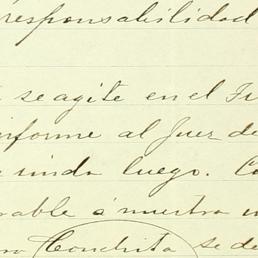 responsabilidad
se agite en el
informe al Juez de
rinda luego.
á nuestra
Conchita se de